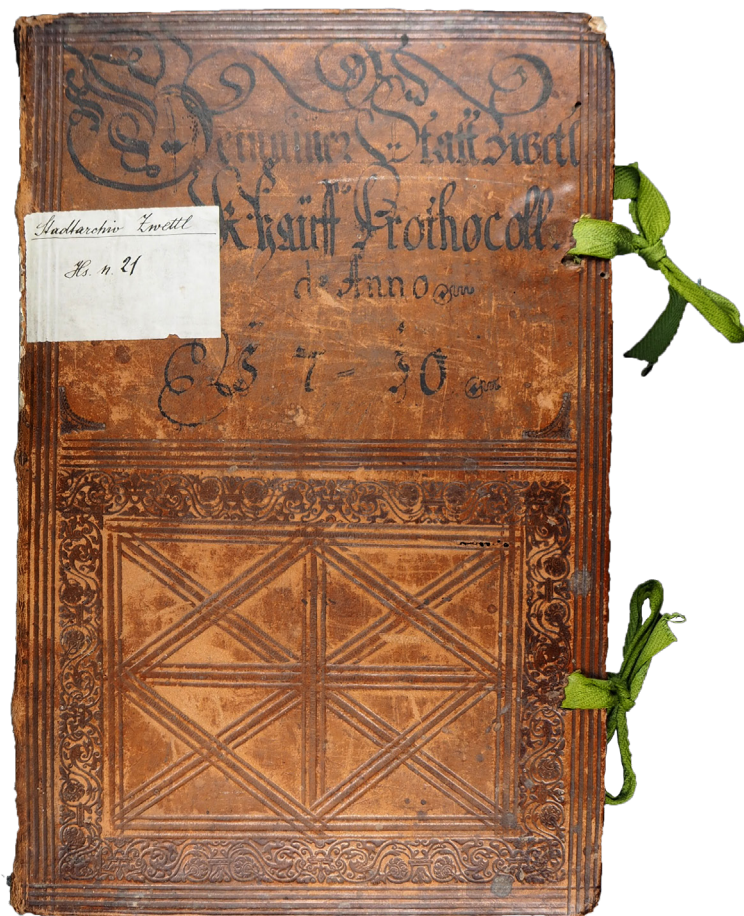 Gemainer Statt Zwetl
Khaüff Prothocoll.
de Anno
Stadtarchiv Zwettl
Hs. n. 21